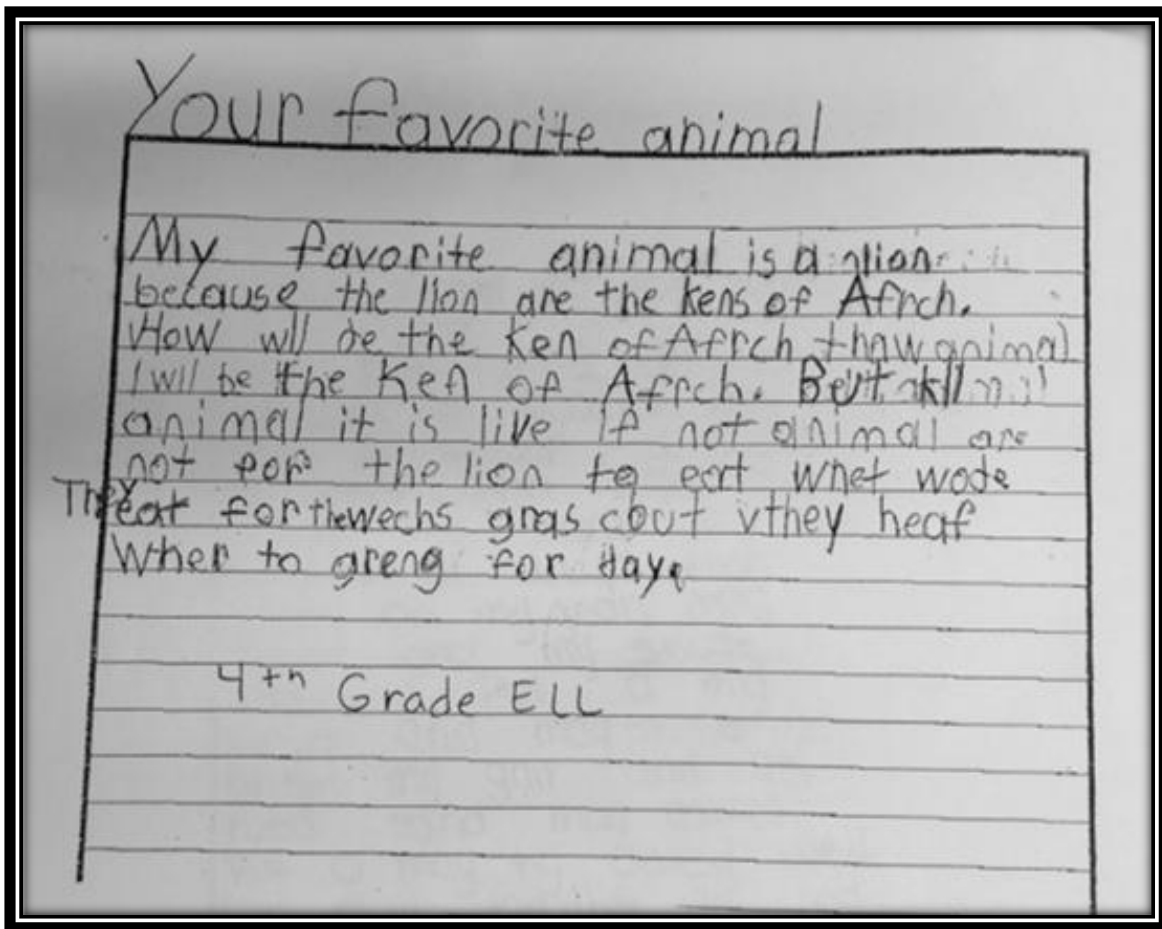 Your favorite animal
My favorite animal is a lion
because the lion are the kens of Afrch.
How wll be the Ken of Afrch thaw animal
I wil be the Ken of Afrch. But all
animal it is live if not animal are
not for the lion to eat whet wode
They eat for the wechs gras cout they heaf
Wher to greng for day
4th Grade ELL